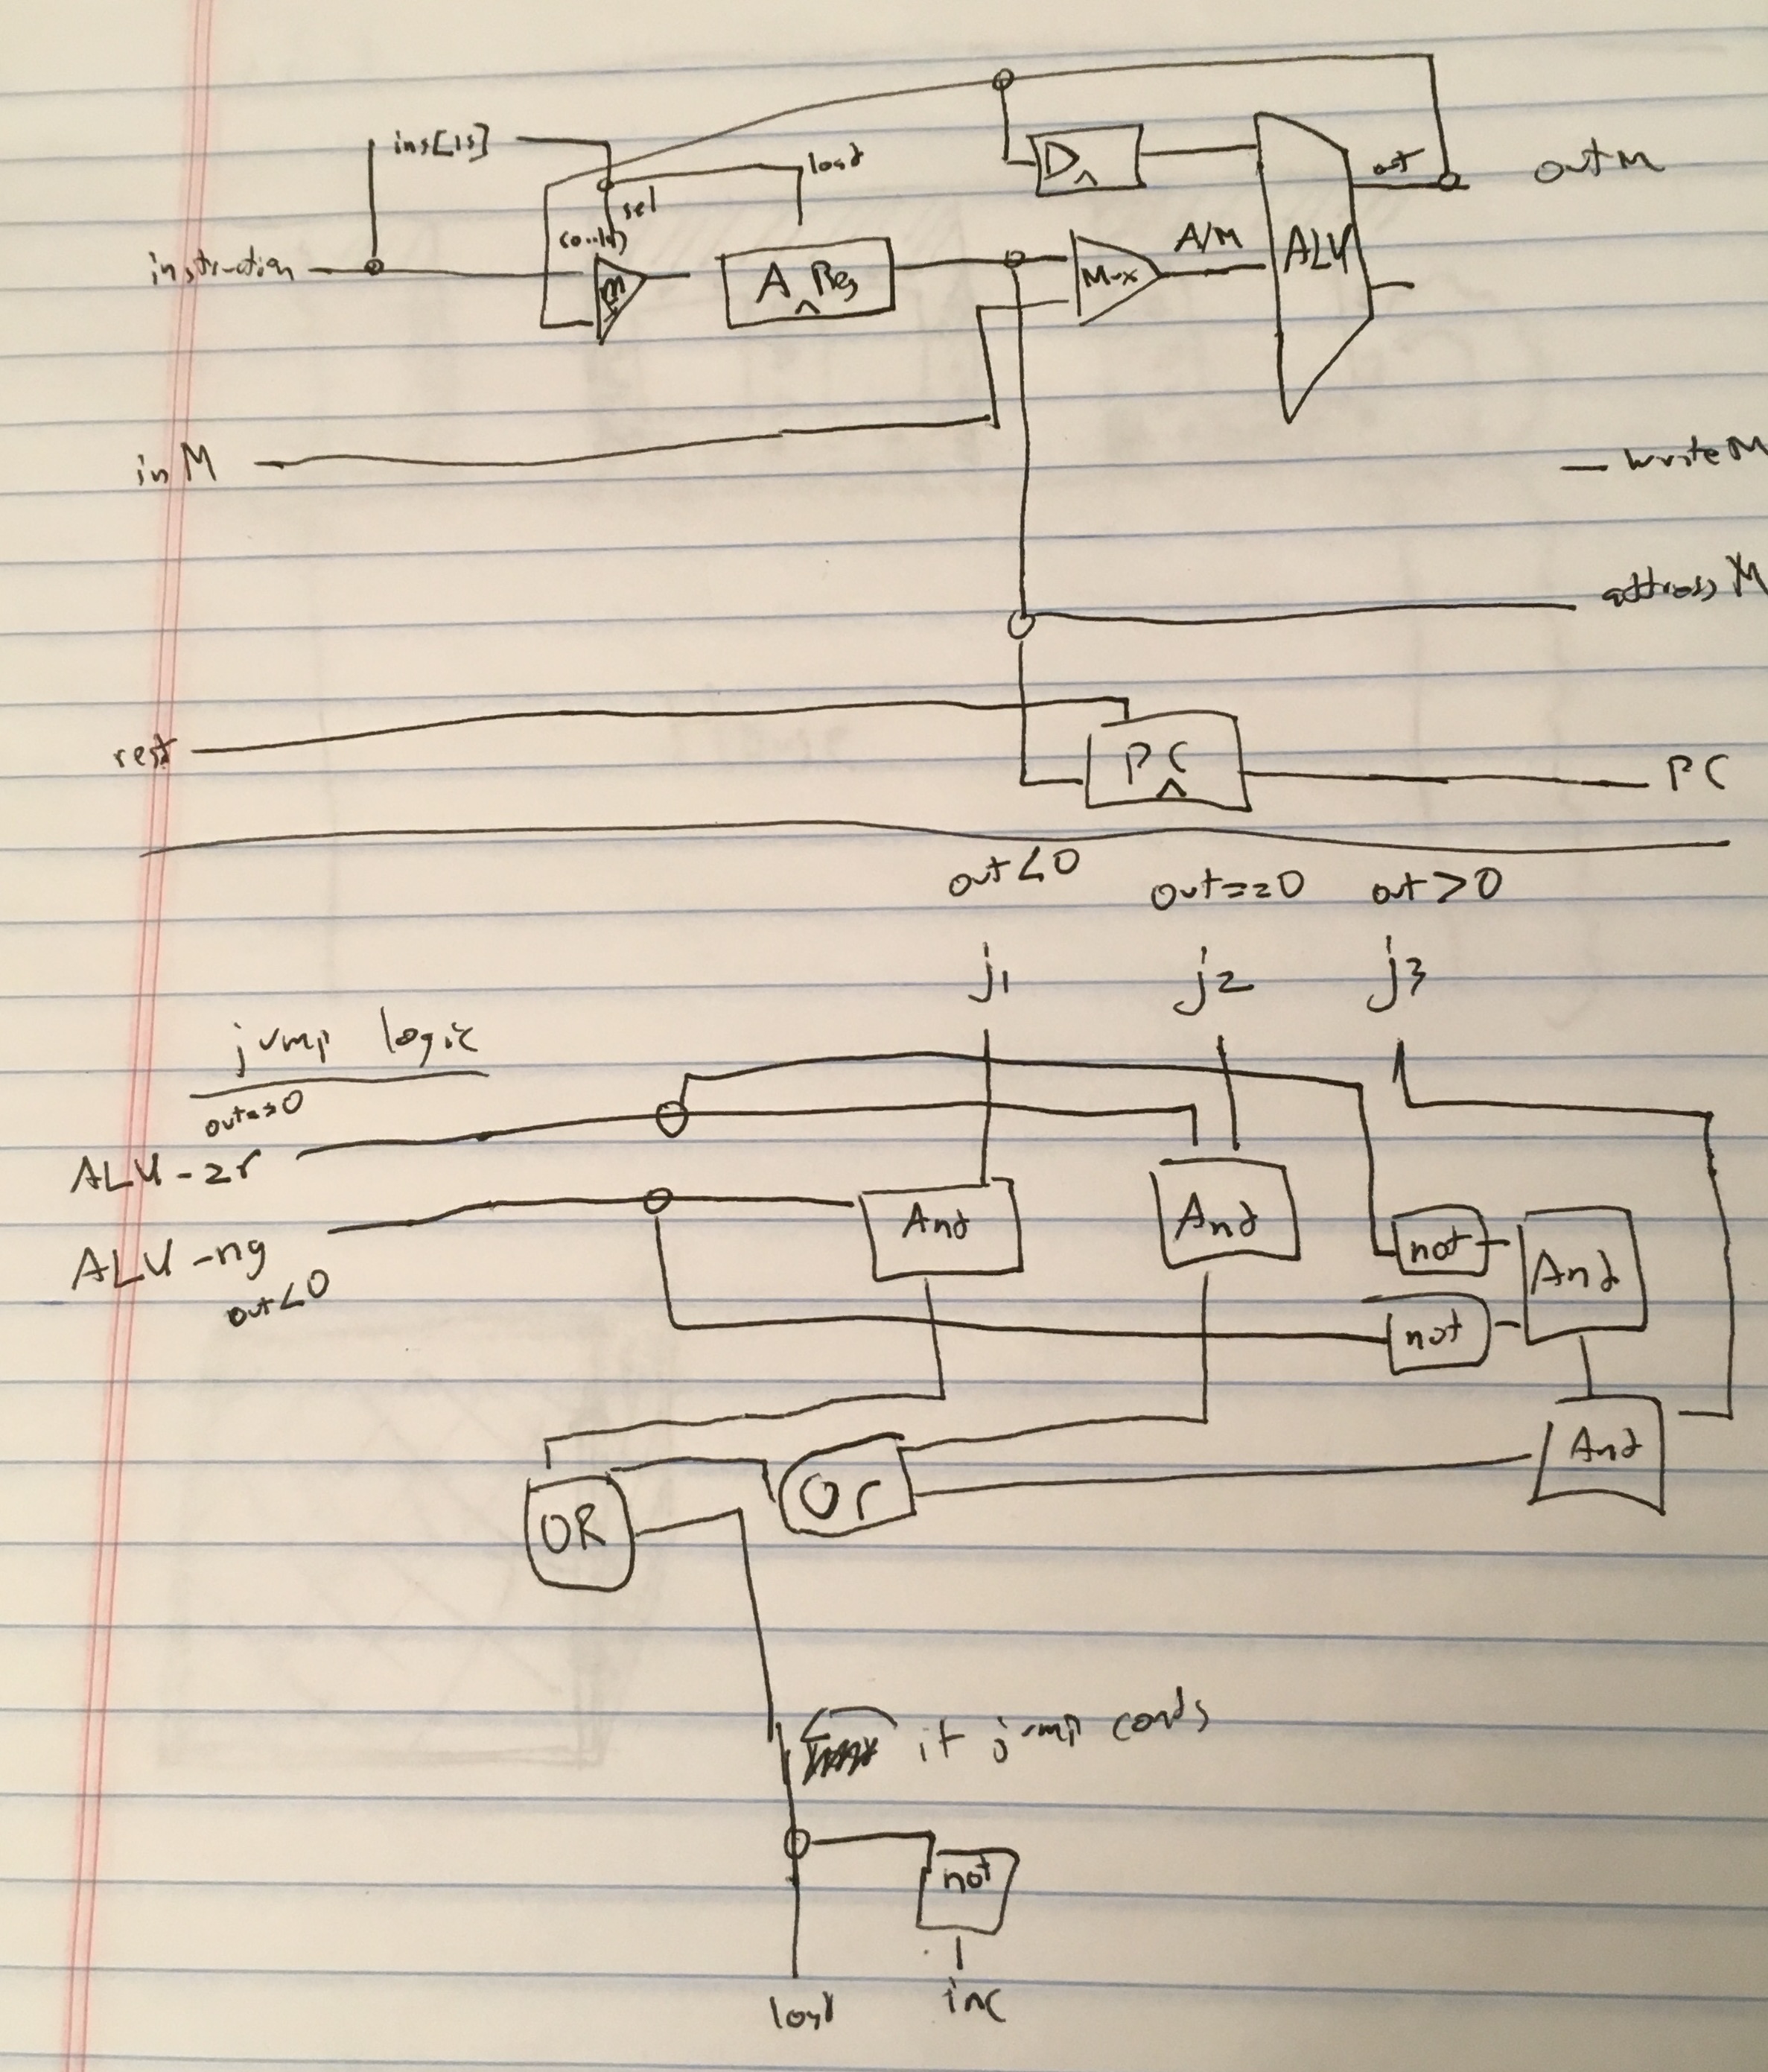 ins[15]
load
out
outM
sel
(0..14)
instruction
m
A Reg
D
Mux
A/M
ALU
inM
writeM
addressM
rest
PC
PC
out<0
out==0
out>0
j1
j2
j3
jump logic
out==0
ALU-zr
ALU-ng
out<0
And
And
not
And
not
And
OR
Or
if jump conds
not
load
inc